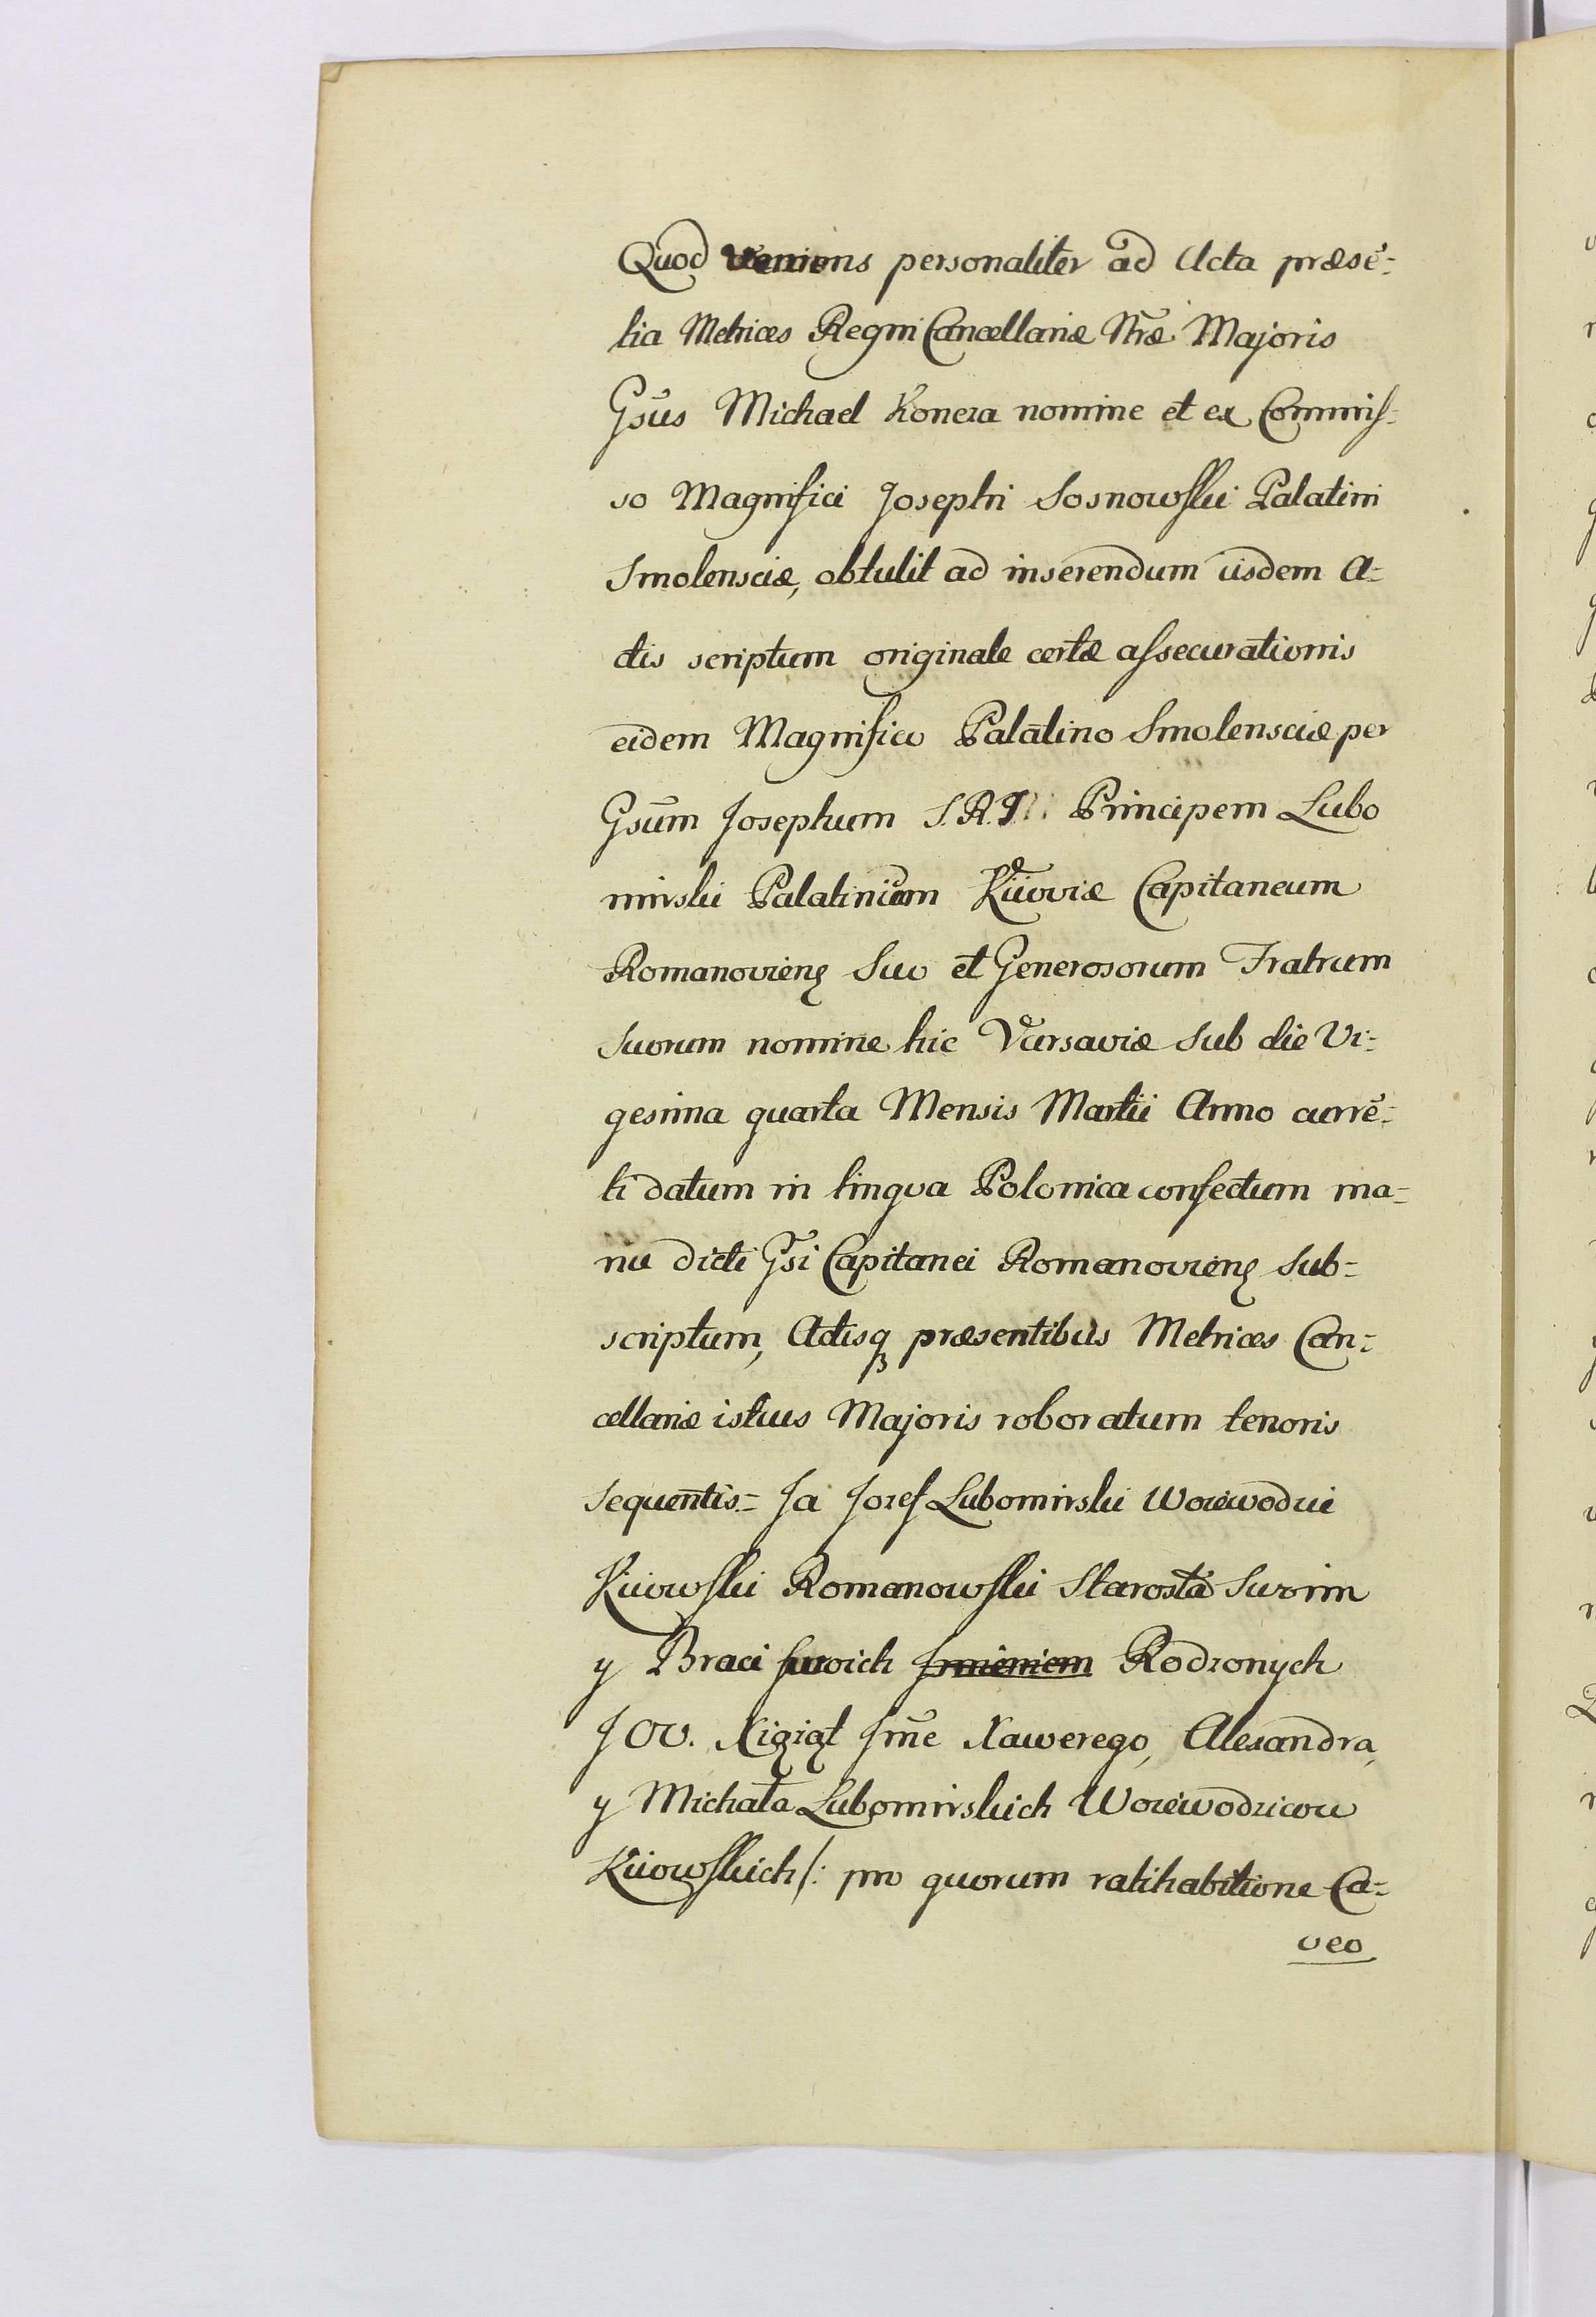 Quod veniens personaliter ad Acta præsē=
tia Metrices Regni Cancellariæ Nr̃æ Majoris
Gsũs Michael Konera nomine et ex Commiſ=
so Magnifici Josephi Sosnowſki Palatini
Smolensciæ, obtulit ad inserendum iisdem A=
ctis scriptum originale certæ aſsecurationis
eidem Magnifico Palatino Smolensciæ per
Gsũm Josephum S.R.I. Principem Lubo
mirski Palatinidem Kijoviæ Capitaneum
Romanovienȩ Suo et Generosorum Fratrum
Suorum nomine hic Varsaviæ Sub die Vi=
gesima quarta Mensis Martii Anno currē=
ti datum in lingva Polonica confectum ma=
nu dicti Gs̃i Capitanei Romanovienȩ Sub=
scriptum, Actisqꝫ præsentibus Metrices Can=
cellariæ istius Majoris roboratum tenoris
Sequentis= Ja Jozef Lubomirski Woiewodzic
Kijowſki Romanowſki Starosta Swoim
y Braci ſwoich Jmieniem Rodzonych
J OO. Xiążąt Jm̃c Xawerego, Alexandra,
y Michała Lubomirskich Woiewodzicow
Kijowſkich /: pro quorum ratihabitione Ca=
veo